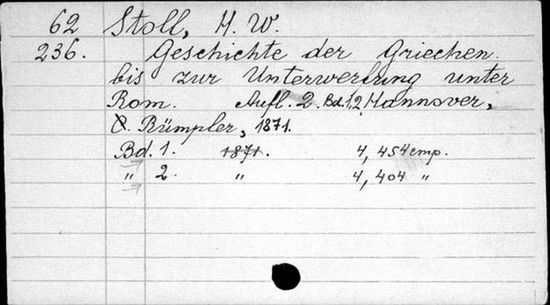 62 Stoll, H. W.
236. Geschichte der Griechen
bis zur Unterwerfung unter
Rom. Aufl. 2. Bd. 1,2, Hannover,
C. Rümpler, 1871.
Bd. 1. 1871. 4, 454 cmp.
„ 2. „ 4, 404 „